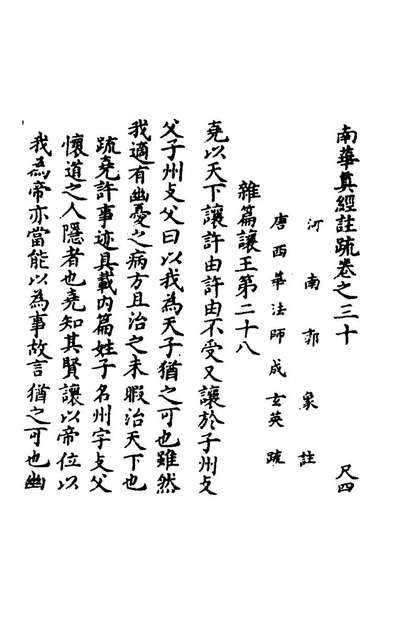 南華真經註疏卷之三十 尺四
河南郭象註
唐西華法師成玄英疏
雜篇讓王第二十八
堯以天下讓許由許由不受又讓於子州支
父子州支父曰以我為天子猶之可也雖然
我適有幽憂之病方且治之未暇治天下也
疏堯許事迹具載内篇姓子名州字支父
懷道之人隱者也堯知其賢讓以帝位以
我為帝亦當能以為事故言猶之可也幽